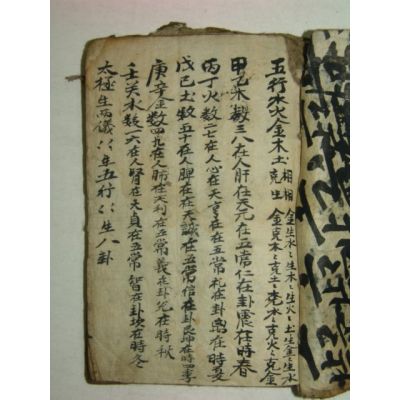 五行水火金木土相生相克
金生水〻生木〻生火〻生土〻生金〻生水
金克木〻克土〻克水〻克火〻克金
甲乙木数三八在人肝在天元在五常仁在卦震在時春
丙丁火数二七在人心在天亨在在五常礼在卦离在時夏
戊己土数五十在人脾在在天誠在五常信在卦艮坤在時四季
庚辛金数四九在人肺在天利在五常義在卦兌在時秋
壬癸水数一六在人腎在天貞在五常智在卦坎在時冬
太極生兩儀〻〻生五行〻〻生八卦